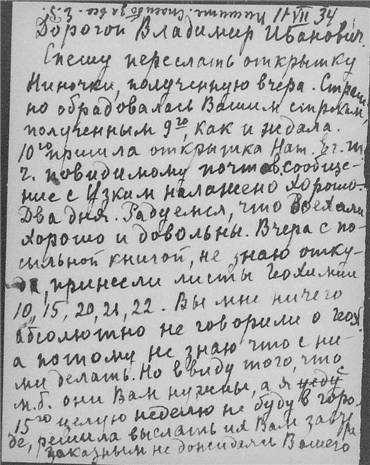 Пишите. Спасибо за все.
11 VII 34
Дорогой Владимир Иванович.
Спешу переслать открытку
Ниночки, полученную вчера. Страш-
но обрадовалась Вашим строкам,
полученным 9го, как и ждала.
10го пришла открытка Нат. Ег. т.
ч. повидимому почтов. сообще-
ние с Узким налажено хорошо.
Два дня. Радуемся, что доехали
хорошо и довольны. Вчера с по-
сыльной книгой, не знаю отку-
да, принесли листы Геохимии
10, 15, 20, 21, 22. Вы мне ничего
абсолютно не говорили о геох.
а потому не знаю что с ни-
ми делать. Но в виду того, что
м.б. они Вам нужны, а я
15го целую неделю не буду в горо-
де, решила выслать их Вам завтра
заказным не дожидаясь Вашего